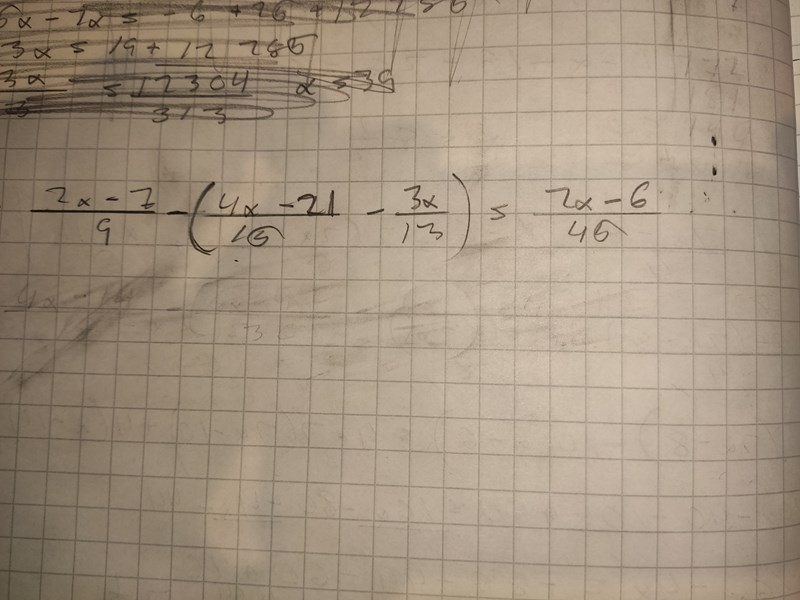 5x - 2x = - 6 + 25 + 12 285
3x = 19 + 12 285
3x = 12304 x = 39
3 313
2x - 7 / 9 - ( 4x - 21 / 15 - 3x / 13 ) = 2x - 6 / 45